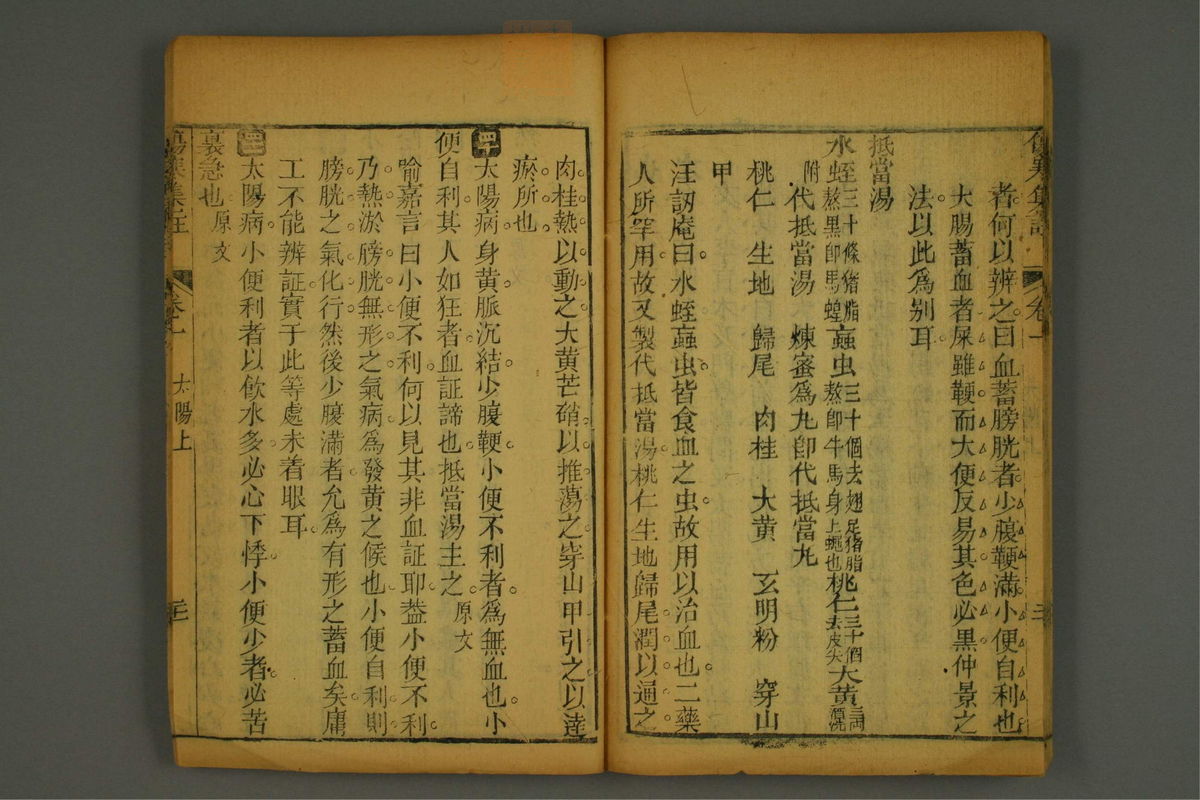 傷寒集註 卷一
者何以辨之曰血蓄膀胱者少腹鞕滿小便自利也
大腸蓄血者屎雖鞕而大便反易其色必黑仲景之
法以此爲別耳
抵當湯
水蛭三十條猪脂熬黒卽馬蝗䖟虫三十個去翅足猪脂熬卽牛馬身上蠅也桃仁三十個去皮尖大黄三両酒洗
附代抵當湯 煉蜜爲丸卽代抵當丸
桃仁 生地 歸尾 肉桂 大黄 玄明粉 穿山
甲
汪訒庵曰水蛭䖟虫皆食血之虫故用以治血也二藥
人所罕用故又製代抵當湯桃仁生地歸尾潤以通之
肉桂熱以動之大黄芒硝以推蕩之穿山甲引之以達
瘀所也
四十 太陽病身黄脈沉結少腹鞕小便不利者爲無血也小
便自利其人如狂者血証諦也抵當湯主之原文
喻嘉言曰小便不利何以見其非血証耶葢小便不利
乃熱淤膀胱無形之氣病爲發黄之候也小便自利則
膀胱之氣化行然後少腹滿者允爲有形之蓄血矣庸
工不能辨証實于此等處未着眼耳
太陽病小便利者以飲水多必心下悸小便少者必苦
裏急也原文
傷寒集註 卷一 太陽上